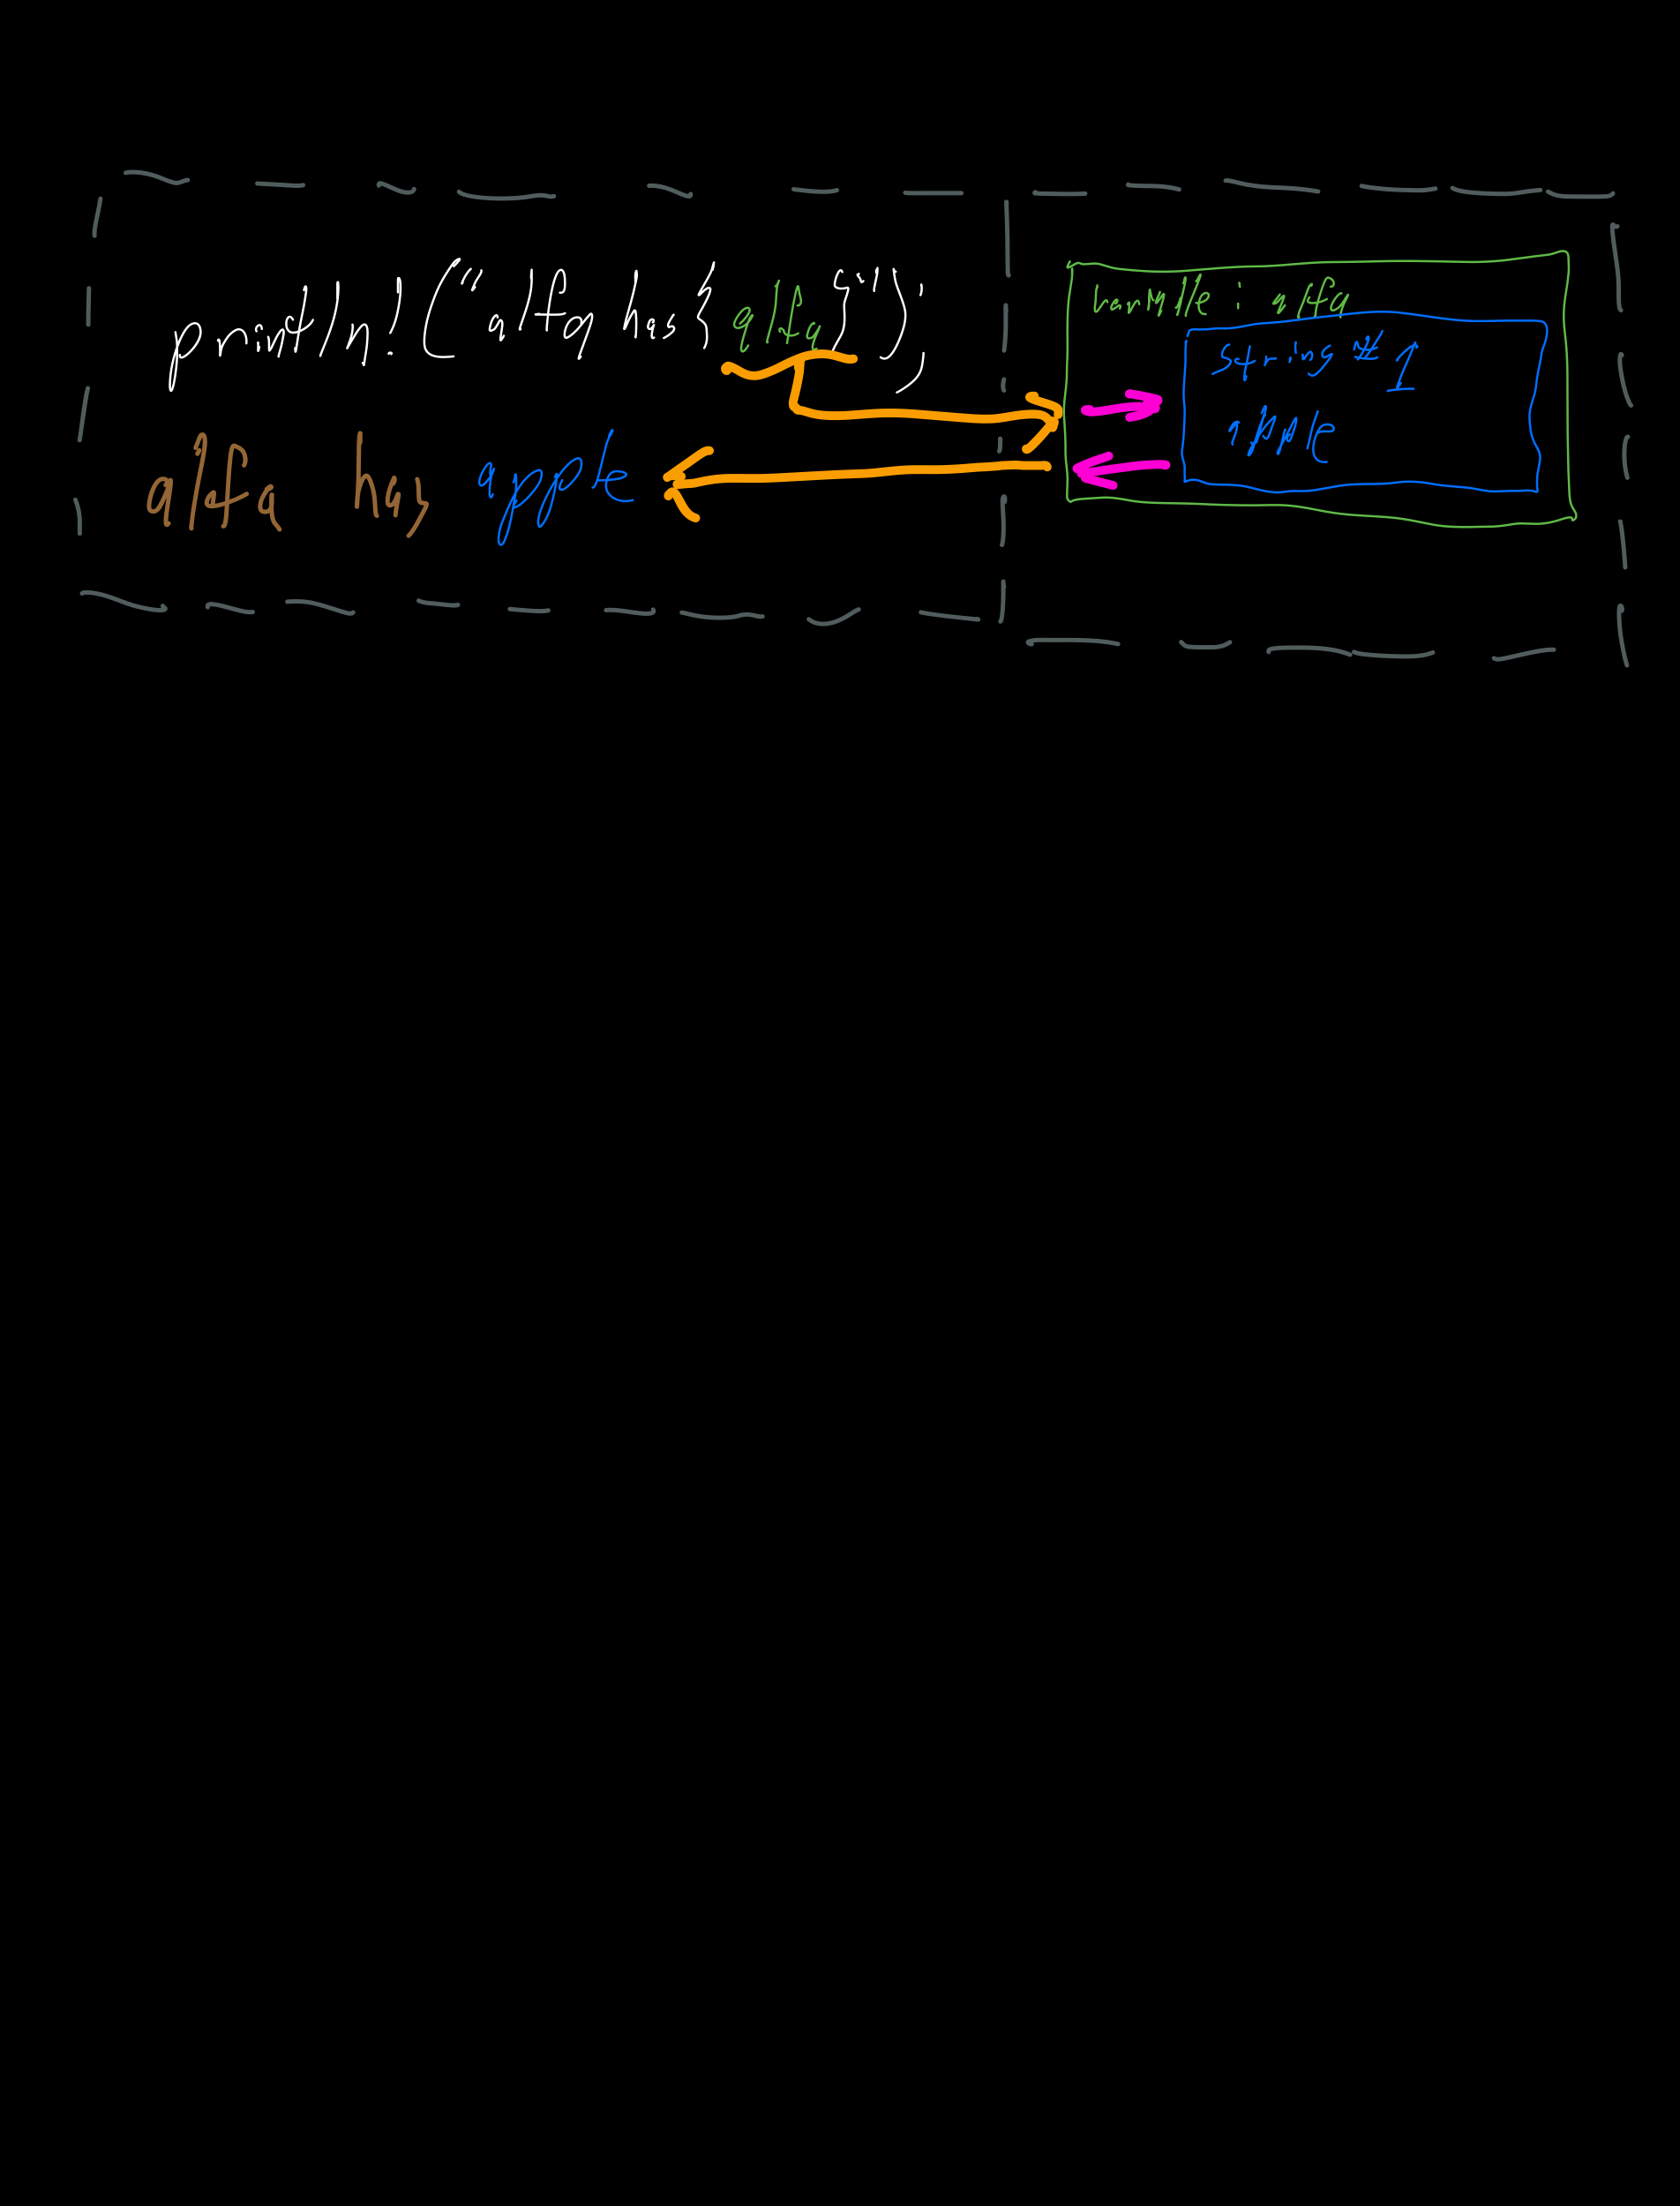 println!("alfa has {alfa}");
alfa has apple
variable: alfa
string #1
apple